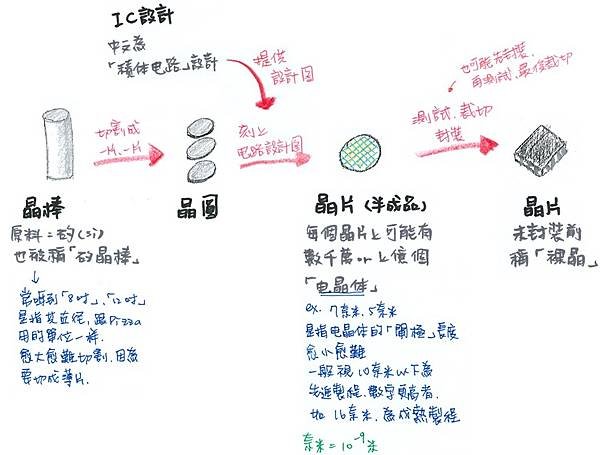 IC設計
中文為
「積体电路」設計
提供
設計図
也可能先封裝.
再測試,最後裁切
切割成
一片、一片
刻上
电路設計図
測試、裁切
封裝
晶棒
晶圓
晶片(半成品)
晶片
原料=矽(Si)
也被稱「矽晶棒」
每個晶片上可能有
數千萬or上億個
「电晶体」
未封裝前
稱「裸晶」
常听到「8吋」、「12吋」
是指其直徑,跟Pizza
用的單位一樣.
愈大愈難切割,因為
要切成薄片.
ex. 7奈米、5奈米
是指电晶体的「閘極」長度
愈小愈難
一般視10奈米以下為
先進製程,數字更高者.
如16奈米,為成熟製程
奈米=10⁻⁹米